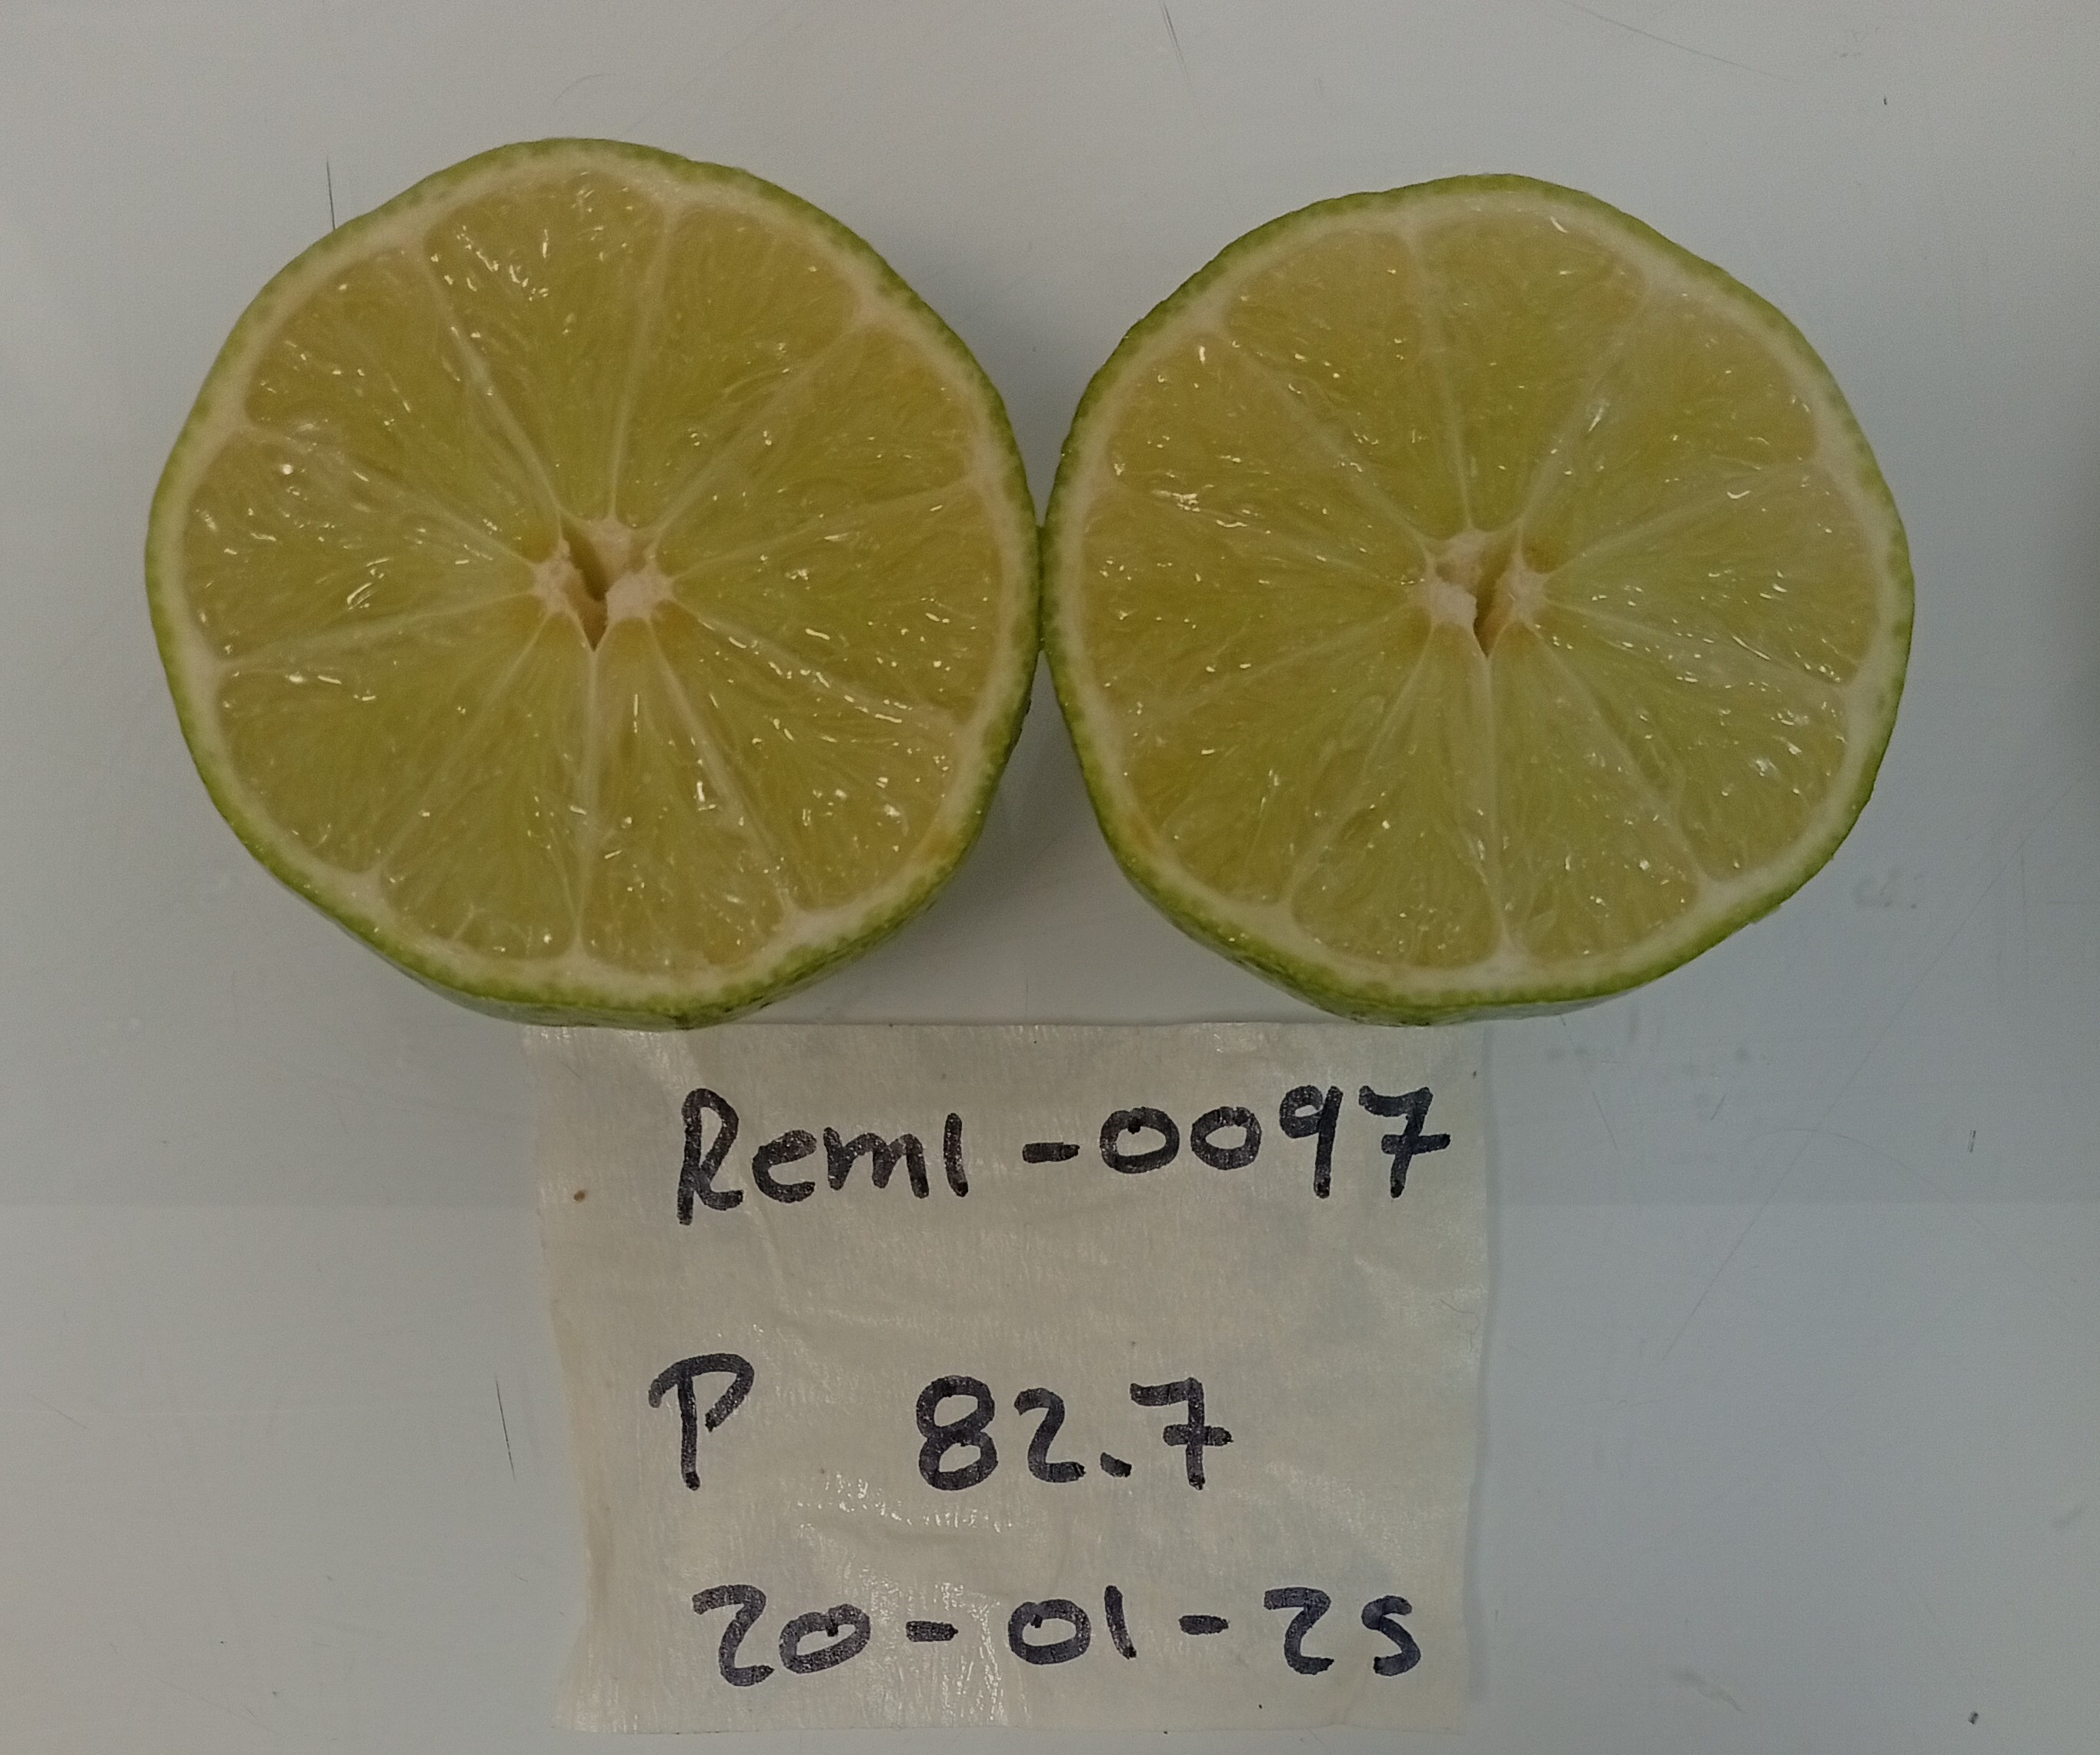 Reml-0097
P 82.7
20-01-25